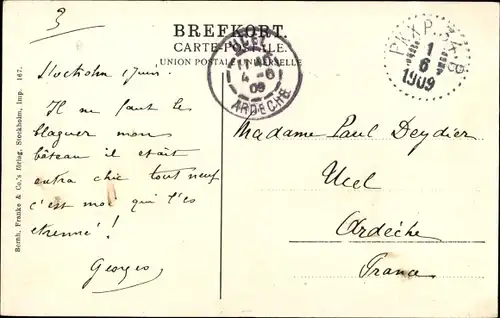 3
BREFKORT.
CARTE-POSTALE.
UNION POSTALE UNIVERSELLE
UCEL
4 -6
09
ARDÈCHE
PKXP
1
6
1909
Bernh. Franke & Co.'s förlag, Stockholm, Imp. 167.
Stockholm 1 Juin.
Il ne faut les
blaguer mon
bâteau il était
extra chic tout neuf
c'est moi qui l'ès
étrenné!
Georges
Madame Paul Deydier
Ucel
Ardèche
France